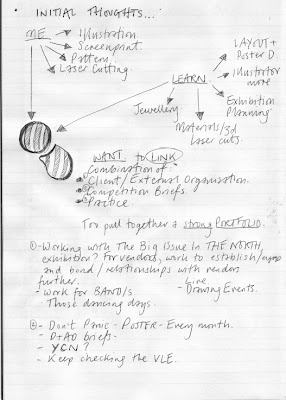 • INITIAL THOUGHTS...
ME
Illustration.
Screenprint.
Pattern.
Laser Cutting.
LEARN
LAYOUT +
Poster D.
Illustrator
more
Exhibition
Planning
Materials/3d
Laser cuts.
Jewellery
WANT to LINK
Combination of:
Client/External Organisation.
Competition Briefs.
Practice.
Too pull together a strong PORTFOLIO.
- Working with The Big Issue IN THE NORTH,
exhibition? For vendors, work to establish/
and bond/relationships with readers
further.
- Work for BAND/s
Those dancing days.
- Live
Drawing Events.
- Don't Panic - POSTER - Every month.
- D+AD briefs -
- YCN?
- Keep checking the VLE.